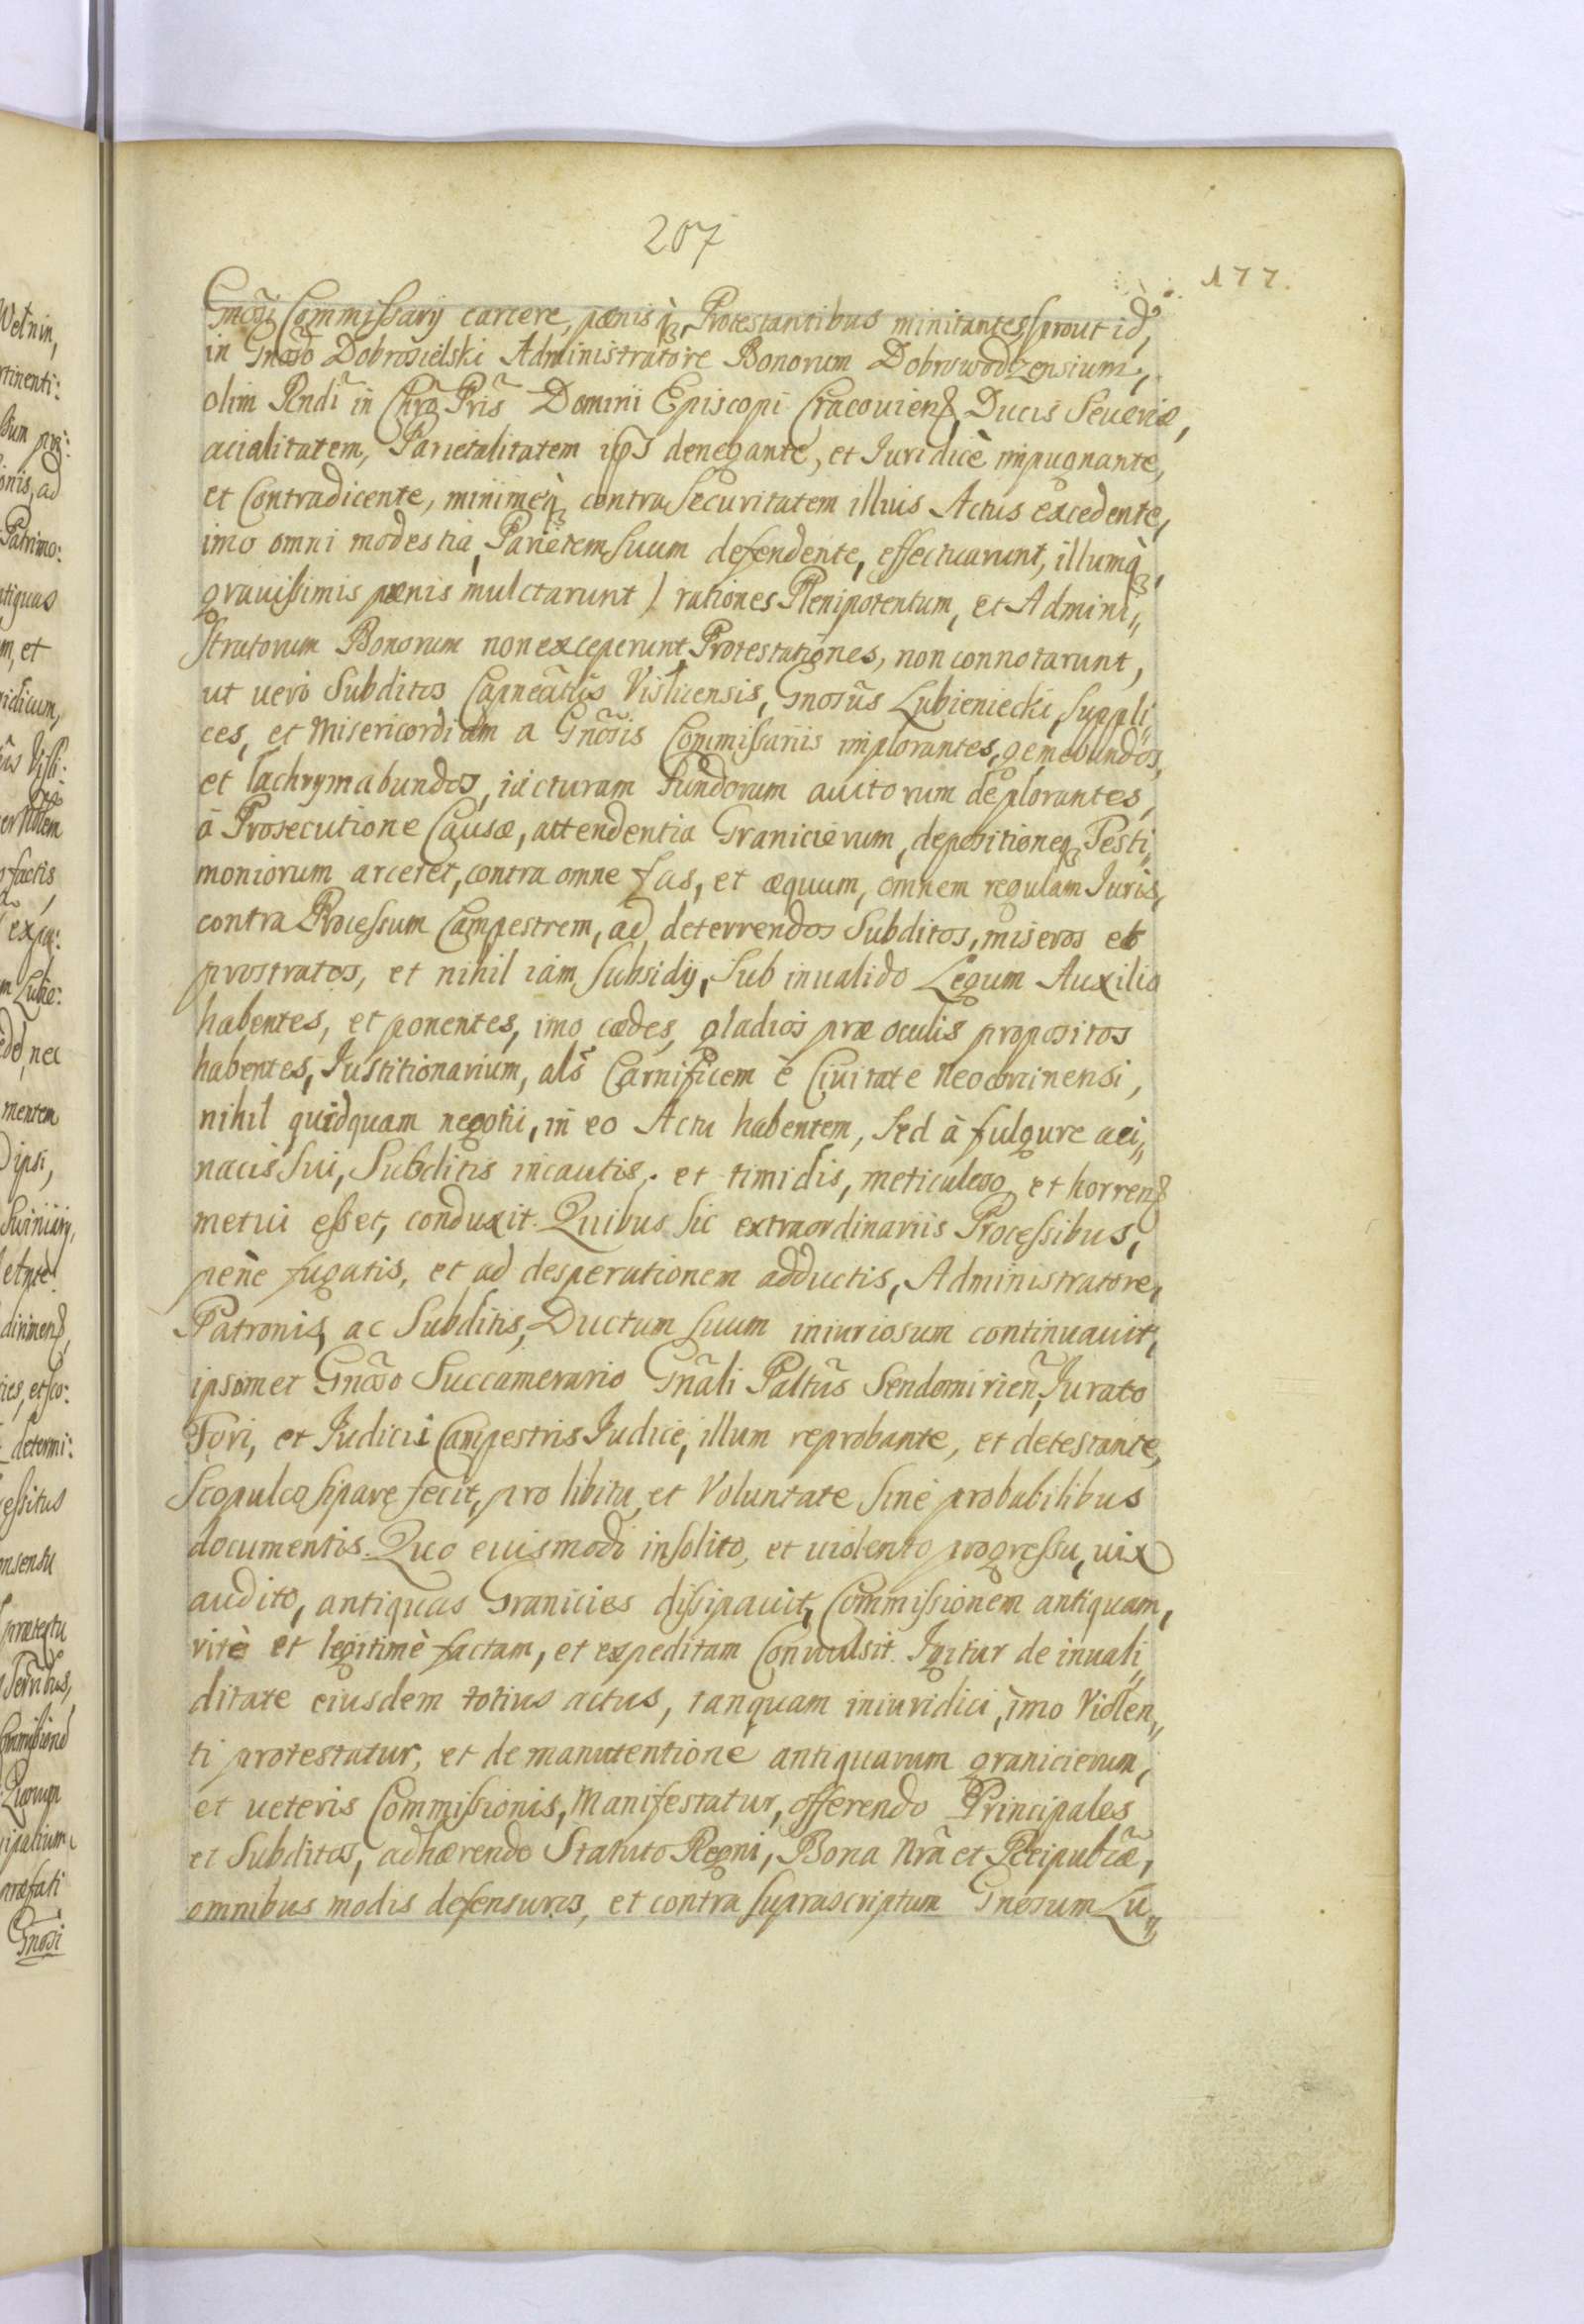 207
177.
Gnosi Commissarij carcere, pænisq̃, Protestantibus minitantes/prout id,
in Gnoso Dobrosielski Administratore Bonorum Dobrowodzensium,
olim Rndi in Chro Pris Domini Episcopi Cracouiens, Ducis Seueriæ,
acialitatem, Parietalitatem ips denegante, et Iuridicè impugnante,
et Contradicente, minimeq̃ contra Securitatem illius Actus excedente,
imo omni modestia, Parietem Suum defendente, effectuarunt, illumq̃,
grauissimis pænis mulctarunt / rationes Plenipotentum, et Admini„
Stratorum Bonorum non exceperunt, Protestationes, non connotarunt,
ut uero Subditos Capneatus Visliciensis, Gnosus Lubieniecki, Suppli„
ces, et Misericordiam a Gnosis Commissariis implorantes, gemebundos,
et lachrymabundos, iacturam fundorum auitorum deplorantes,
à Prosecutione Causæ, attendentia Granicierum, depositioneq̃ Testi„
moniorum arceret, contra omne fas, et æquum, omnem regulam Iuris,
contra Processum Campestrem, ad deterrendos Subditos, miseros et
prostratos, et nihil iam Subsidij, Sub inualido Legum Auxilio
habentes, et ponentes, imo cædes, gladios præ oculis propositos
habentes, Iustitionarium, als Carnificem è Ciuitate Neocorcinensi,
nihil quidquam negotii, in eo Actu habentem, Sed à fulgure aci„
nacis Sui, Subditis incautis, et timidis, meticuloso, et horrens
metui esset, conduxit. Quibus Sic extraordinariis Processibus,
penè fugatis, et ad desperationem adductis, Administratore,
Patronis, ac Subditis, Ductum Suum iniuriosum continuauit,
ipsomet Gnoso Succamerario Gñali Paltũs Sendomirieñ, Iurato
Fori, et Iudicii Campestris Iudice, illum reprobante, et detestante,
Scopulos sipare fecit, pro libitu, et Voluntate Sine probabilibus
documentis. Quo euismodi insolito, et uiolento progressu, uix
audito, antiquas Granicies dissipauit, Commissionem antiquam,
ritè et legitimè factam, et expeditam Conuulsit. Igitur de inuali„
ditate eiusdem totius actus, tanquam iniuridici, imo Violen„
ti protestatur, et de manutentione antiquarum granicierum,
et ueteris Commissionis, Manifestatur, offerendo Principales
et Subditos, adhærendo Statuto Regni, Bona Nrã et Reipublicæ,
omnibus modis defensuros, et contra Suprascriptum Gnosum Lu„